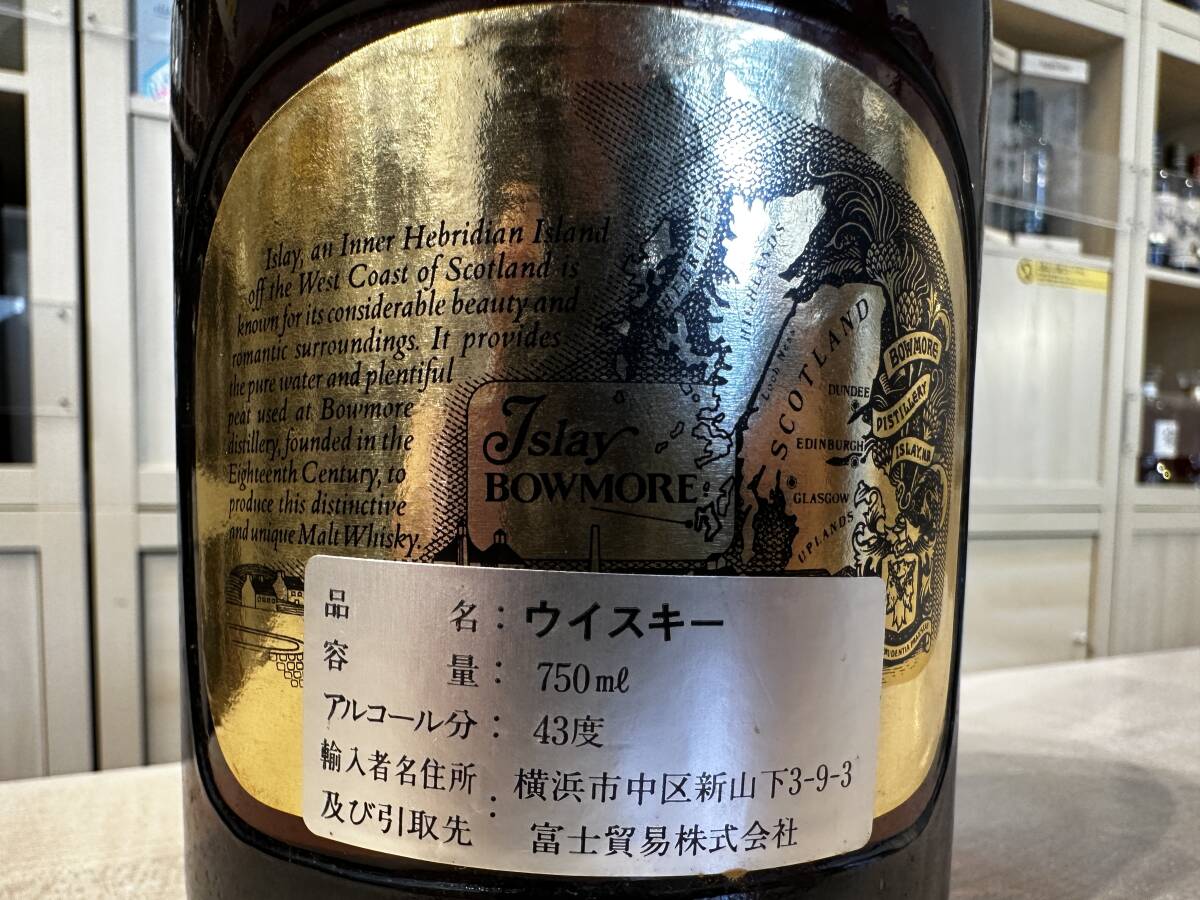 Islay, an Inner Hebridian Island
off the West Coast of Scotland is
known for its considerable beauty and
romantic surroundings. It provides
the pure water and plentiful
peat used at Bowmore
distillery, founded in the
Eighteenth Century, to
produce this distinctive
and unique Malt Whisky.
Islay
BOWMORE
HIGHLANDS
LOCH NESS
SCOTLAND
DUNDEE
EDINBURGH
GLASGOW
UPLANDS
BOWMORE
DISTILLERY
ISLAY
品名：ウイスキー
容量：750㎖
アルコール分：43度
輸入者名住所：横浜市中区新山下3-9-3
及び引取先 富士貿易株式会社